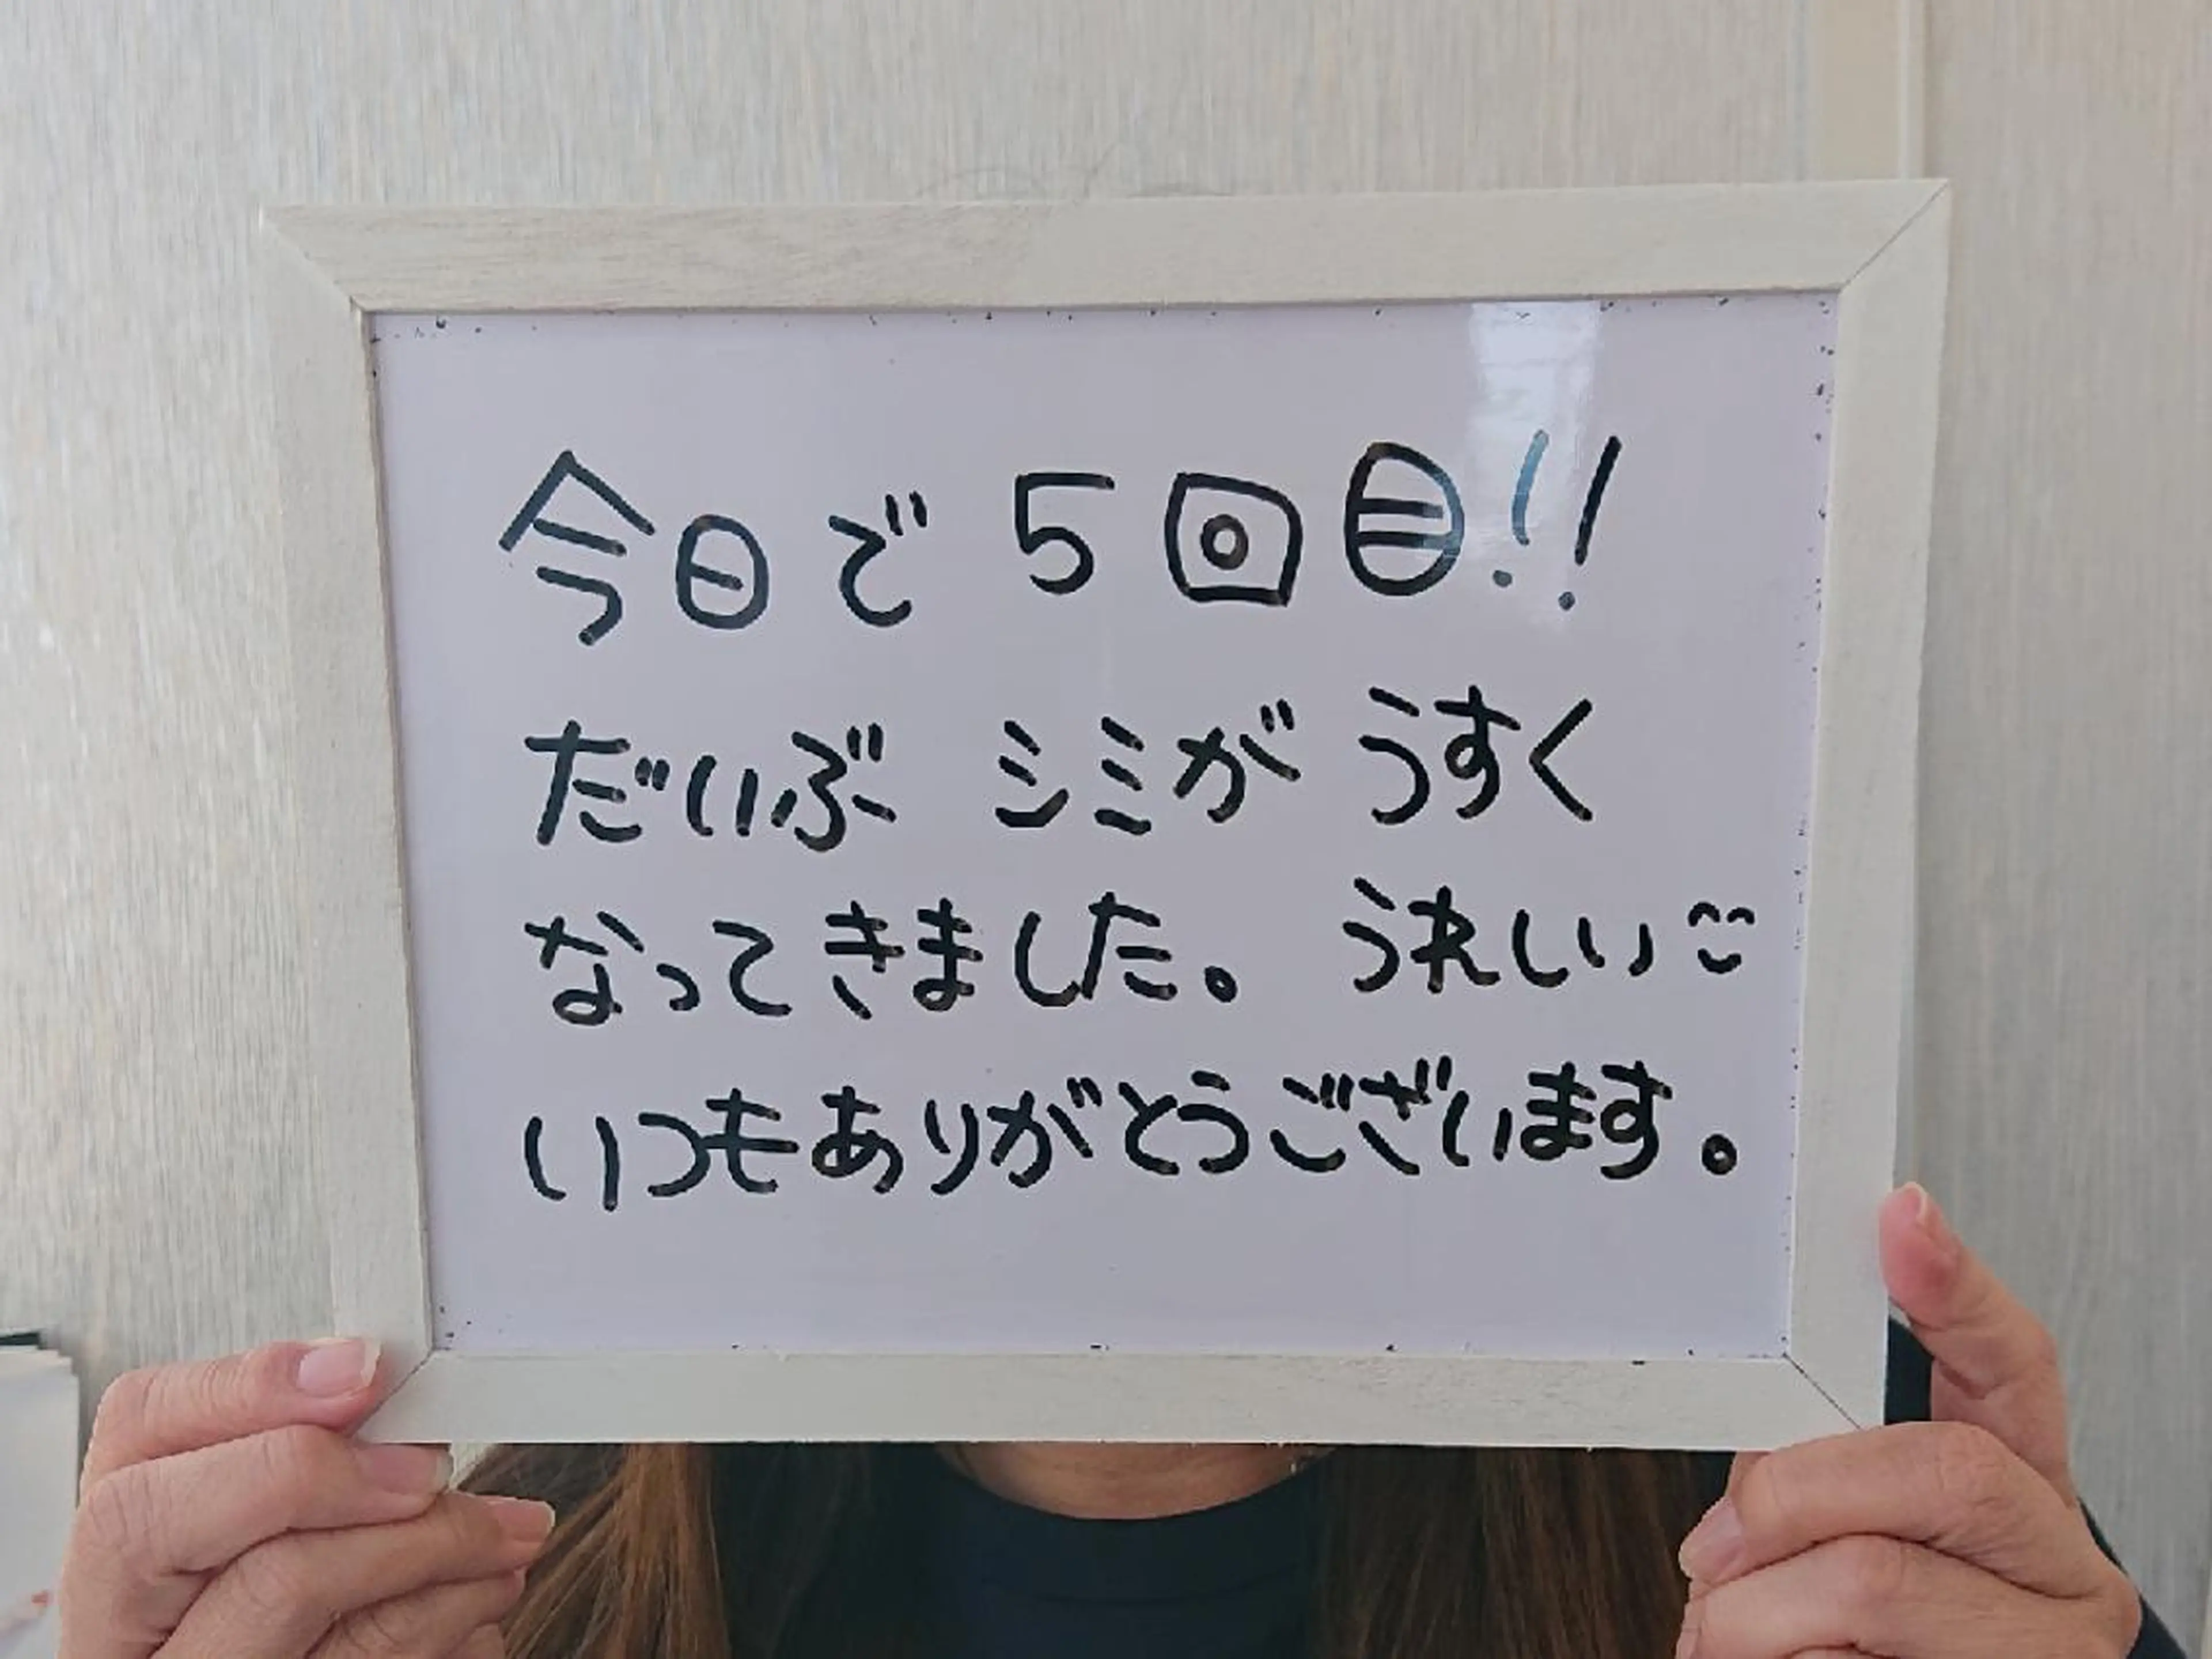 今日で 5回目!!
だいぶ シミが うすく
なってきました。 うれしい
いつもありがとうございます。